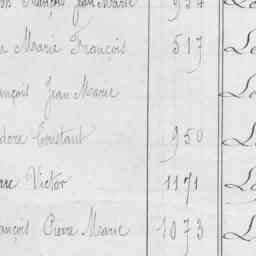 François Jean Marie 954
Marie François 517
ançois Jean Marie
dore Constant 950
Victor 1171
ançois Pierre Marie 1073